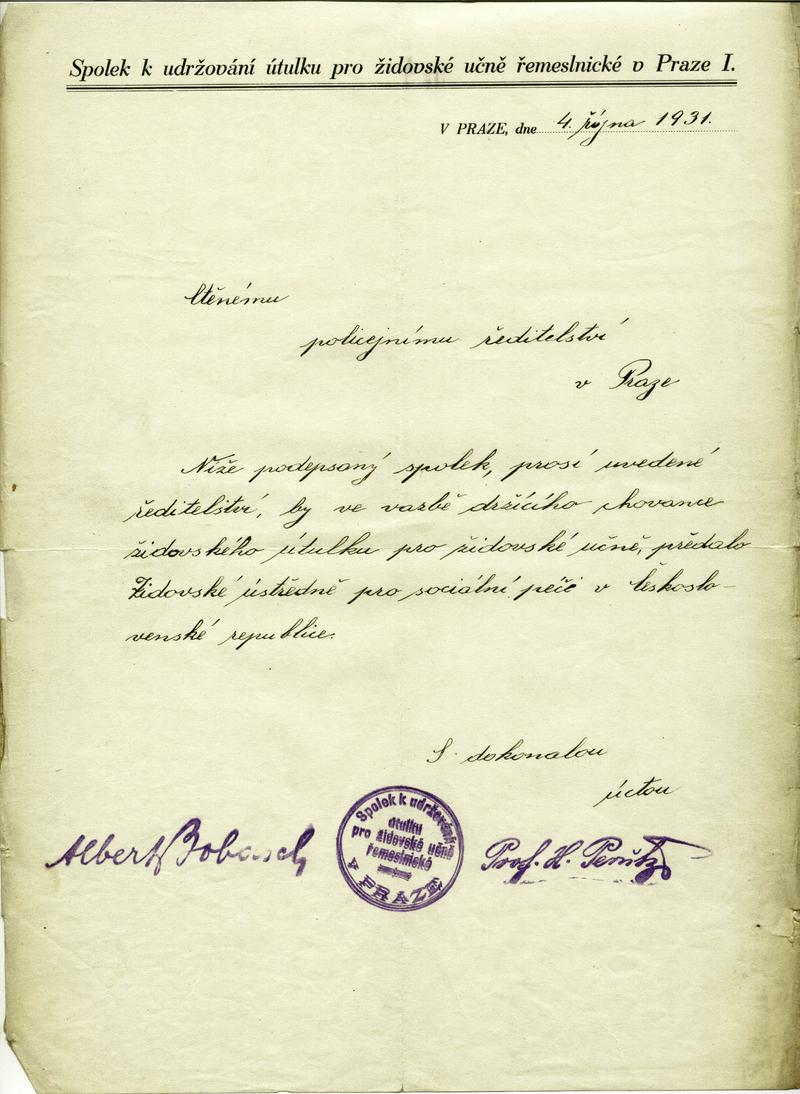 Spolek k udržování útulku pro židovské učně řemeslnické v Praze I.
V PRAZE, dne 4. října 1931.
Ctěnému
policejnímu ředitelství
v Praze
Níže podepsaný spolek, prosí uvedené
ředitelství, by ve vazbě držícího chovance
židovského útulku pro židovské učně, předalo
Židovské ústředně pro sociální péči v Českoslo-
venské republice.
S dokonalou
úctou
Albert Bobasch
Spolek k udržování
útulku
pro židovské učně
řemeslnické
V PRAZE
Prof. H. Perutz